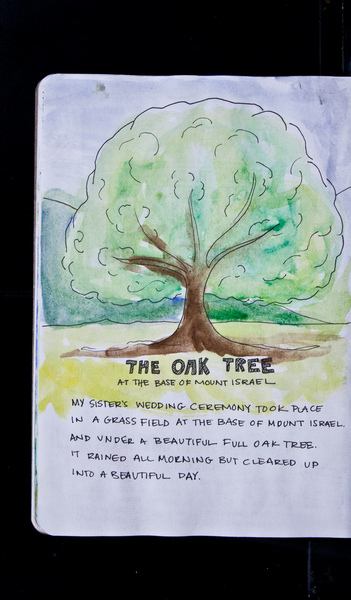 THE OAK TREE
AT THE BASE OF MOUNT ISRAEL
MY SISTER'S WEDDING CEREMONY TOOK PLACE
IN A GRASS FIELD AT THE BASE OF MOUNT ISRAEL.
AND UNDER A BEAUTIFUL FULL OAK TREE.
IT RAINED ALL MORNING BUT CLEARED UP
INTO A BEAUTIFUL DAY.